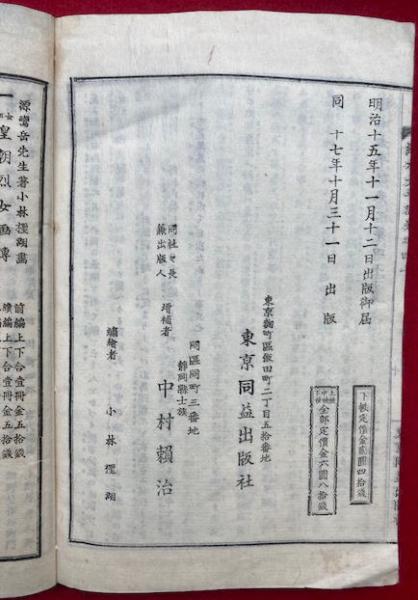 明治十五年十一月十二日出版御届
同　十七年十月三十一日　出　版
下帙定價金貳圓四拾錢
全部定價金六圓八拾錢
東京麴町區飯田町二丁目五拾番地
東京同益出版社
同社々長
兼出版人
増補者
同區同町三番地
靜岡縣士族
中村賴治
繡繪者
小林
湖
源鸞岳先生著小林
湖畫
皇朝烈女畫傳
前編上下合壹冊金五拾錢
續編上下合壹冊金五拾錢